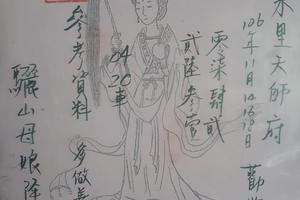 水里天師府
106年11月14 15 16日
零柒肆貳
貳陸參壹
04
20車
參考資料
多做善
驪山母娘降